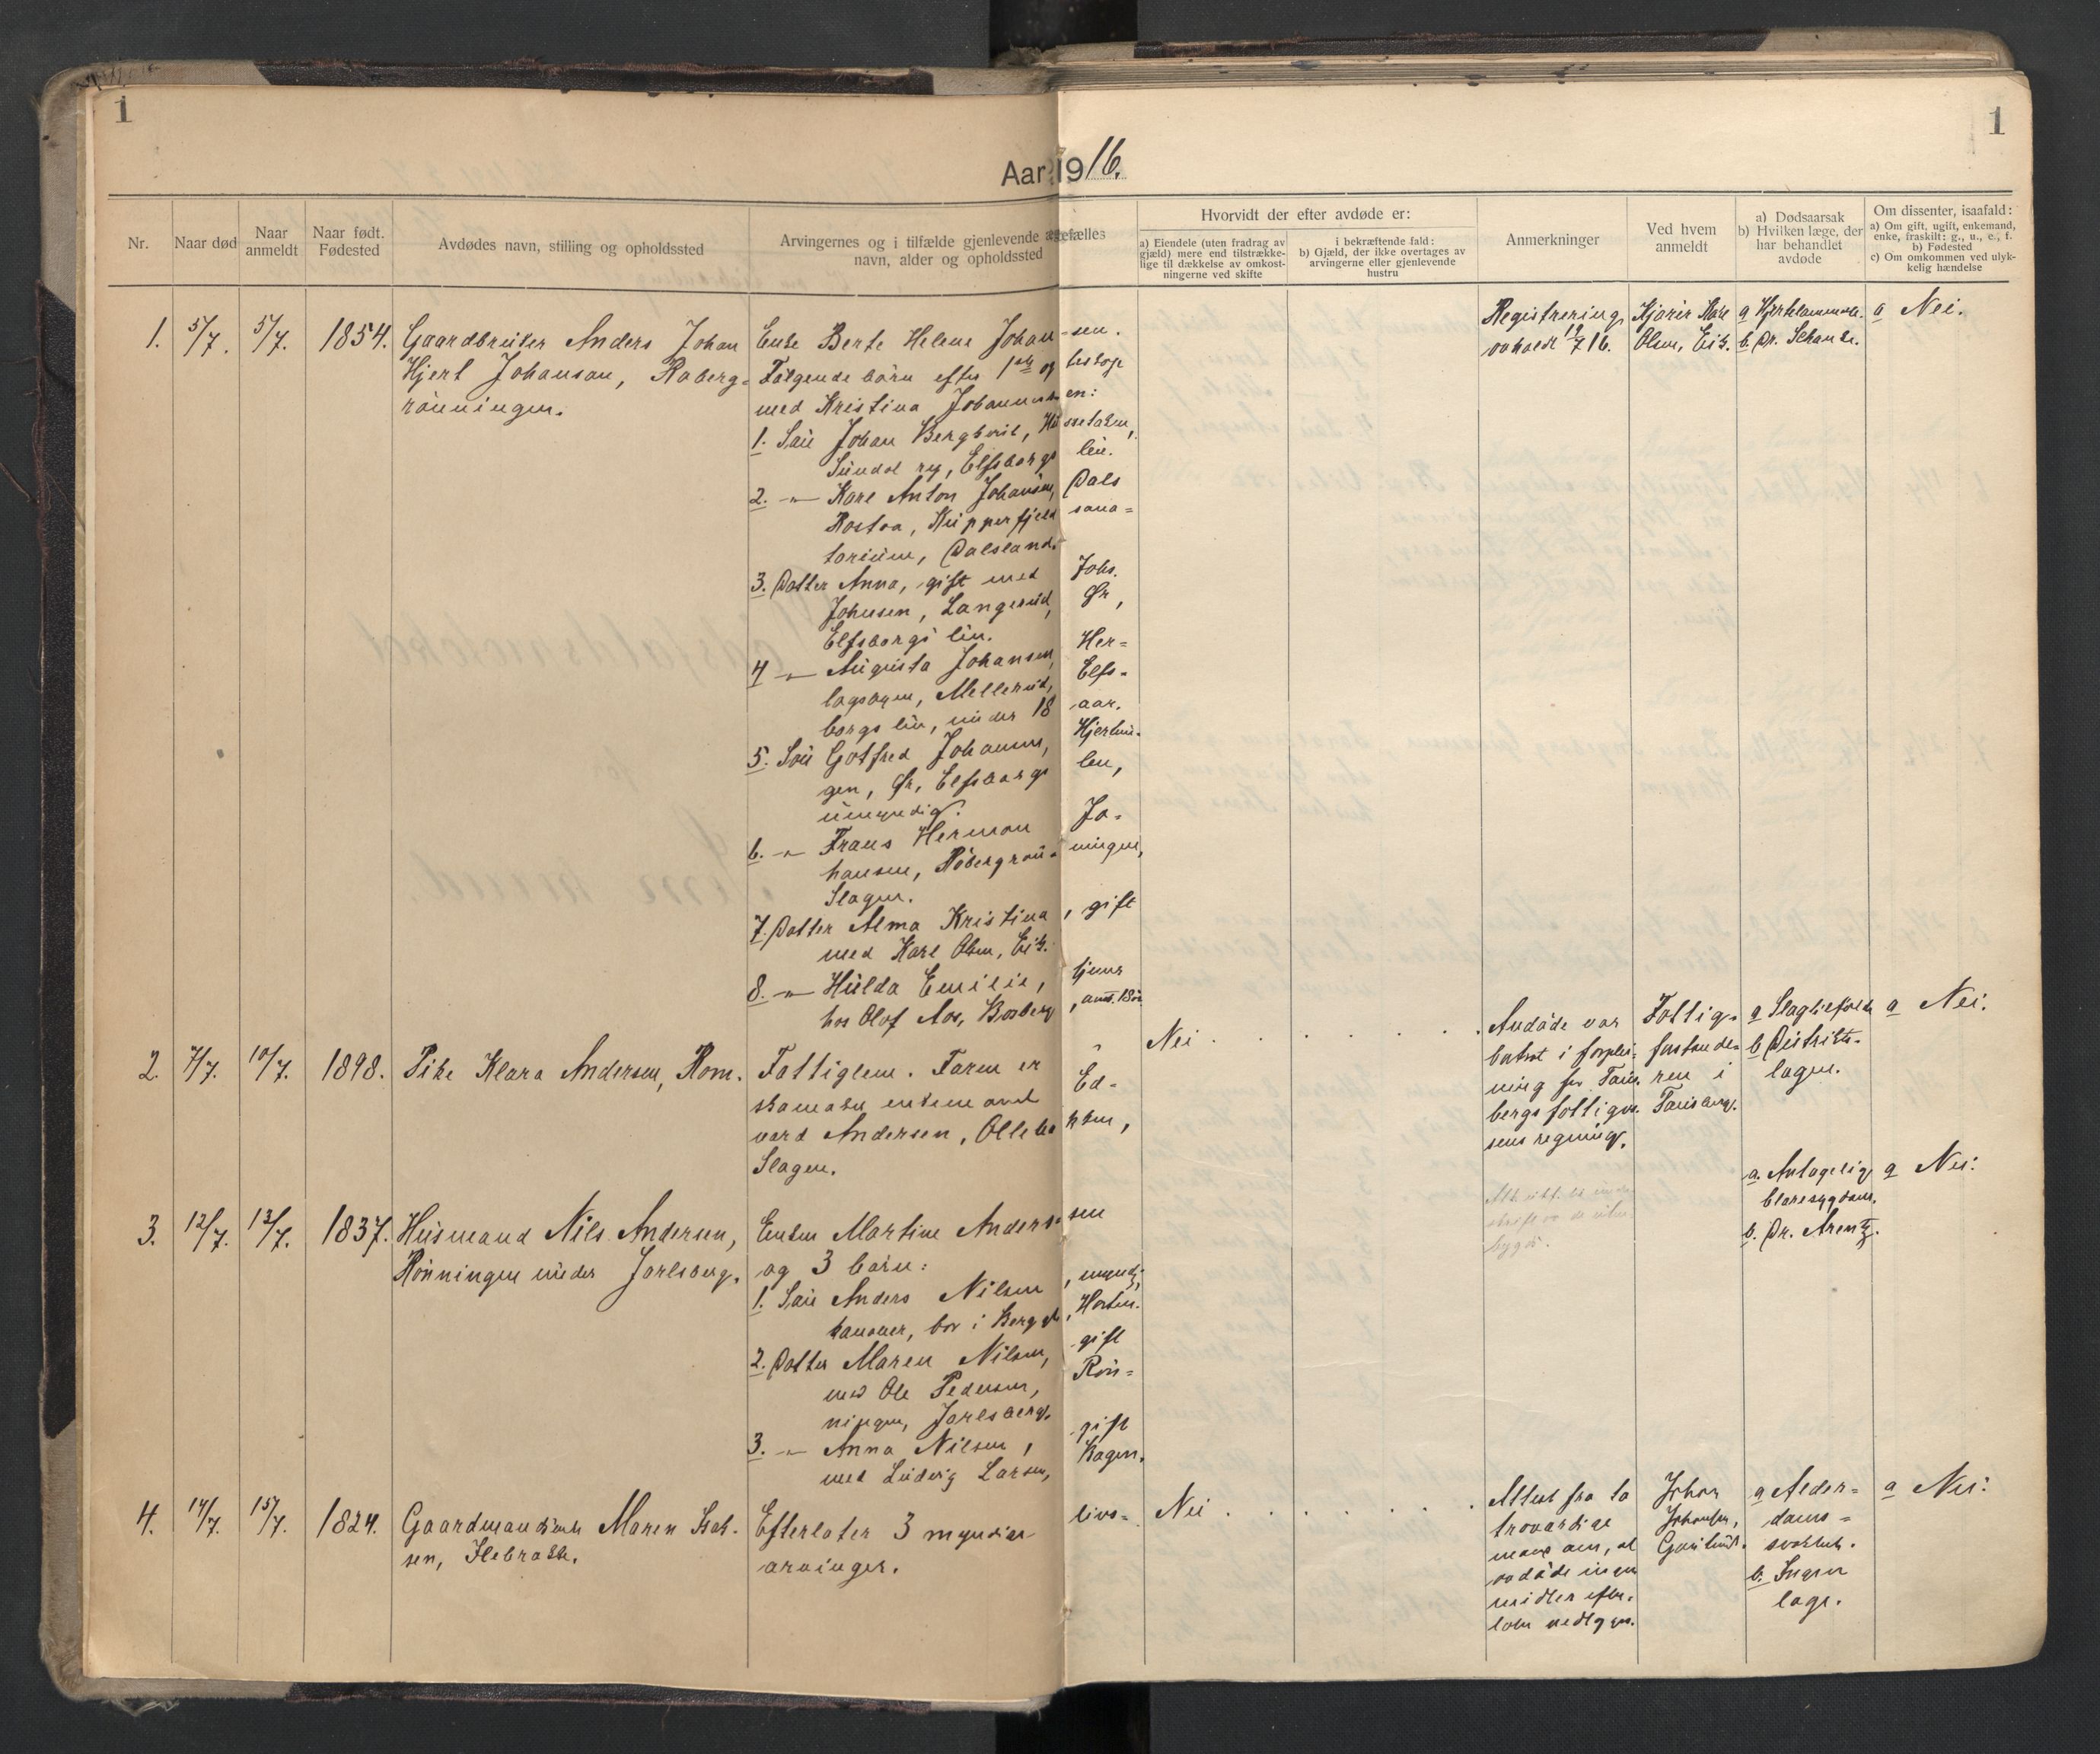 1
1
Aar 1916.
Nr.
Naar død
Naar anmeldt
Naar født. Fødested
Avdødes navn, stilling og opholdssted
Arvingernes og i tilfælde gjenlevende ægtefælles
navn, alder og opholdssted
Hvorvidt der efter avdøde er:
a) Eiendele (uten fradrag av
gjæld) mere end tilstrække-
lige til dækkelse av omkost-
ningerne ved skifte
i bekræftende fald:
b) Gjæld, der ikke overtages av
arvingerne eller gjenlevende
hustru
Anmerkninger
Ved hvem
anmeldt
a) Dødsaarsak
b) Hvilken læge, der
har behandlet
avdøde
Om dissenter, isaafald:
a) Om gift, ugift, enkemand,
enke, fraskilt: g., u., e., f.
b) Fødested
c) Om omkommen ved ulyk-
kelig hændelse
1. 5/7. 5/7. 1854. Gaardbruker Anders Johan
Hjert Johanson, Roberg-
rönningen.
Enke Berte Helene Johansen.
Følgende börn efter 1ste egteskap
med Kristina Johannesen:
1. Sön Johan Bergkvist,
Sundal ry, Elfsborgs len.
2. -"- Karl Anton Johansen, Dals
Rostoa, Küpperfjeld sana=
torium, Dalsland.
3. Datter Anna, gift med Johs.
Johnsen, Langerud, Ør,
Elfsborgs len.
4 -"- Augusta Johansen, Her=
lagsagen, Mellerud, Elfs-
borgs len, under 18 aar.
5. Sön Gotfred Johansen, Hjertun-
gen, Ør, Elfsborgs len,
umyndig.
6. -"- Frans Herman Jo-
hansen, Röbergrönningen,
Slagen.
7. Datter Alma Kristina, gift
med Karl Olsen, Eik.
8. -"- Hulda Emilie, tjener
hos Olof Aos, Borberg,
Registrering
avholdt 19/7 16.
Karl
Olsen, Eik.
a
b Dr. Schanke.
a Nei.
2. 7/7. 10/7. 1898. Pike Klara Andersen, Rom.
Fattiglem. Faren er
skomaker enkemand Ed-
vard Andersen, Ollebakken,
Slagen.
Nei . . . . . . .
Avdöde var
i forplei-
ning for Töns-
bergs fattigvæ-
sens regning.
Fattig-
forstande-
ren i
Tönsberg.
a
b Distrikts-
lægen.
a Nei.
3. 12/7. 13/7. 1837. Husmand Nils Andersen,
Rönningen under Jarlsberg.
Enken Martine Andersen
og 3 börn:
1. Sön Anders Nilsen, myndig,
kanoner, bor i Horten.
2. Datter Maren Nilsen, gift
med Ole Pedersen, Rön=
ningen, Jarlsberg.
3. -"- Anna Nilsen, gift
med Ludvig Larsen, Bagen.
a. Antagelig
blæresygdom.
b. Dr. Arentz.
a Nei.
4. 14/7. 15/7. 1824. Gaardmandsenke Maren Isak-
sen, Ilebrække.
Efterlater 3 myndige livs=
arvinger.
Nei . . . . . . .
Attest fra to
troværdige
mænd om, at
avdöde ingen
midler efter-
lot vedlagt.
Johan
Johansen,
a Alder=
doms=
svakhet.
b. Ingen
læge.
a Nei.